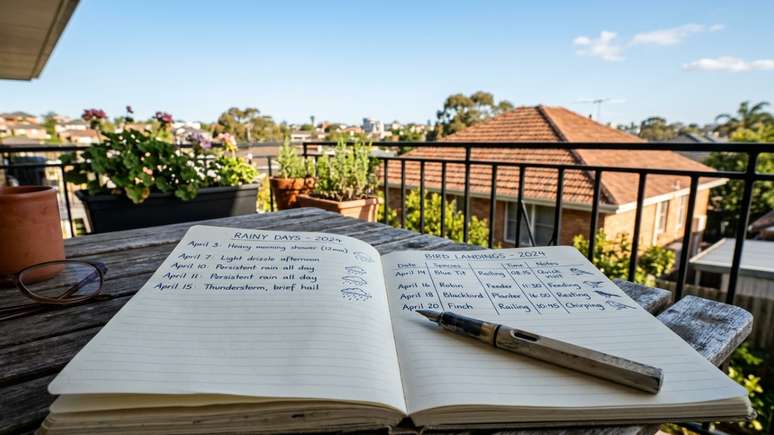 RAINY DAYS - 2024
April 3: Heavy morning shower (12mm)
April 7: Light drizzle afternoon
April 10: Persistent rain all day
April 11: Persistent rain all day
April 15: Thunderstorm, brief hail
BIRD LANDINGS - 2024
Date Species Time Notes
April 14 Blue Tit Railing Quick visit
April 16 Robin Feeder 11:30 Feeding
April 18 Blackbird Planter Resting
April 20 Finch Railing 10:45 Chirping